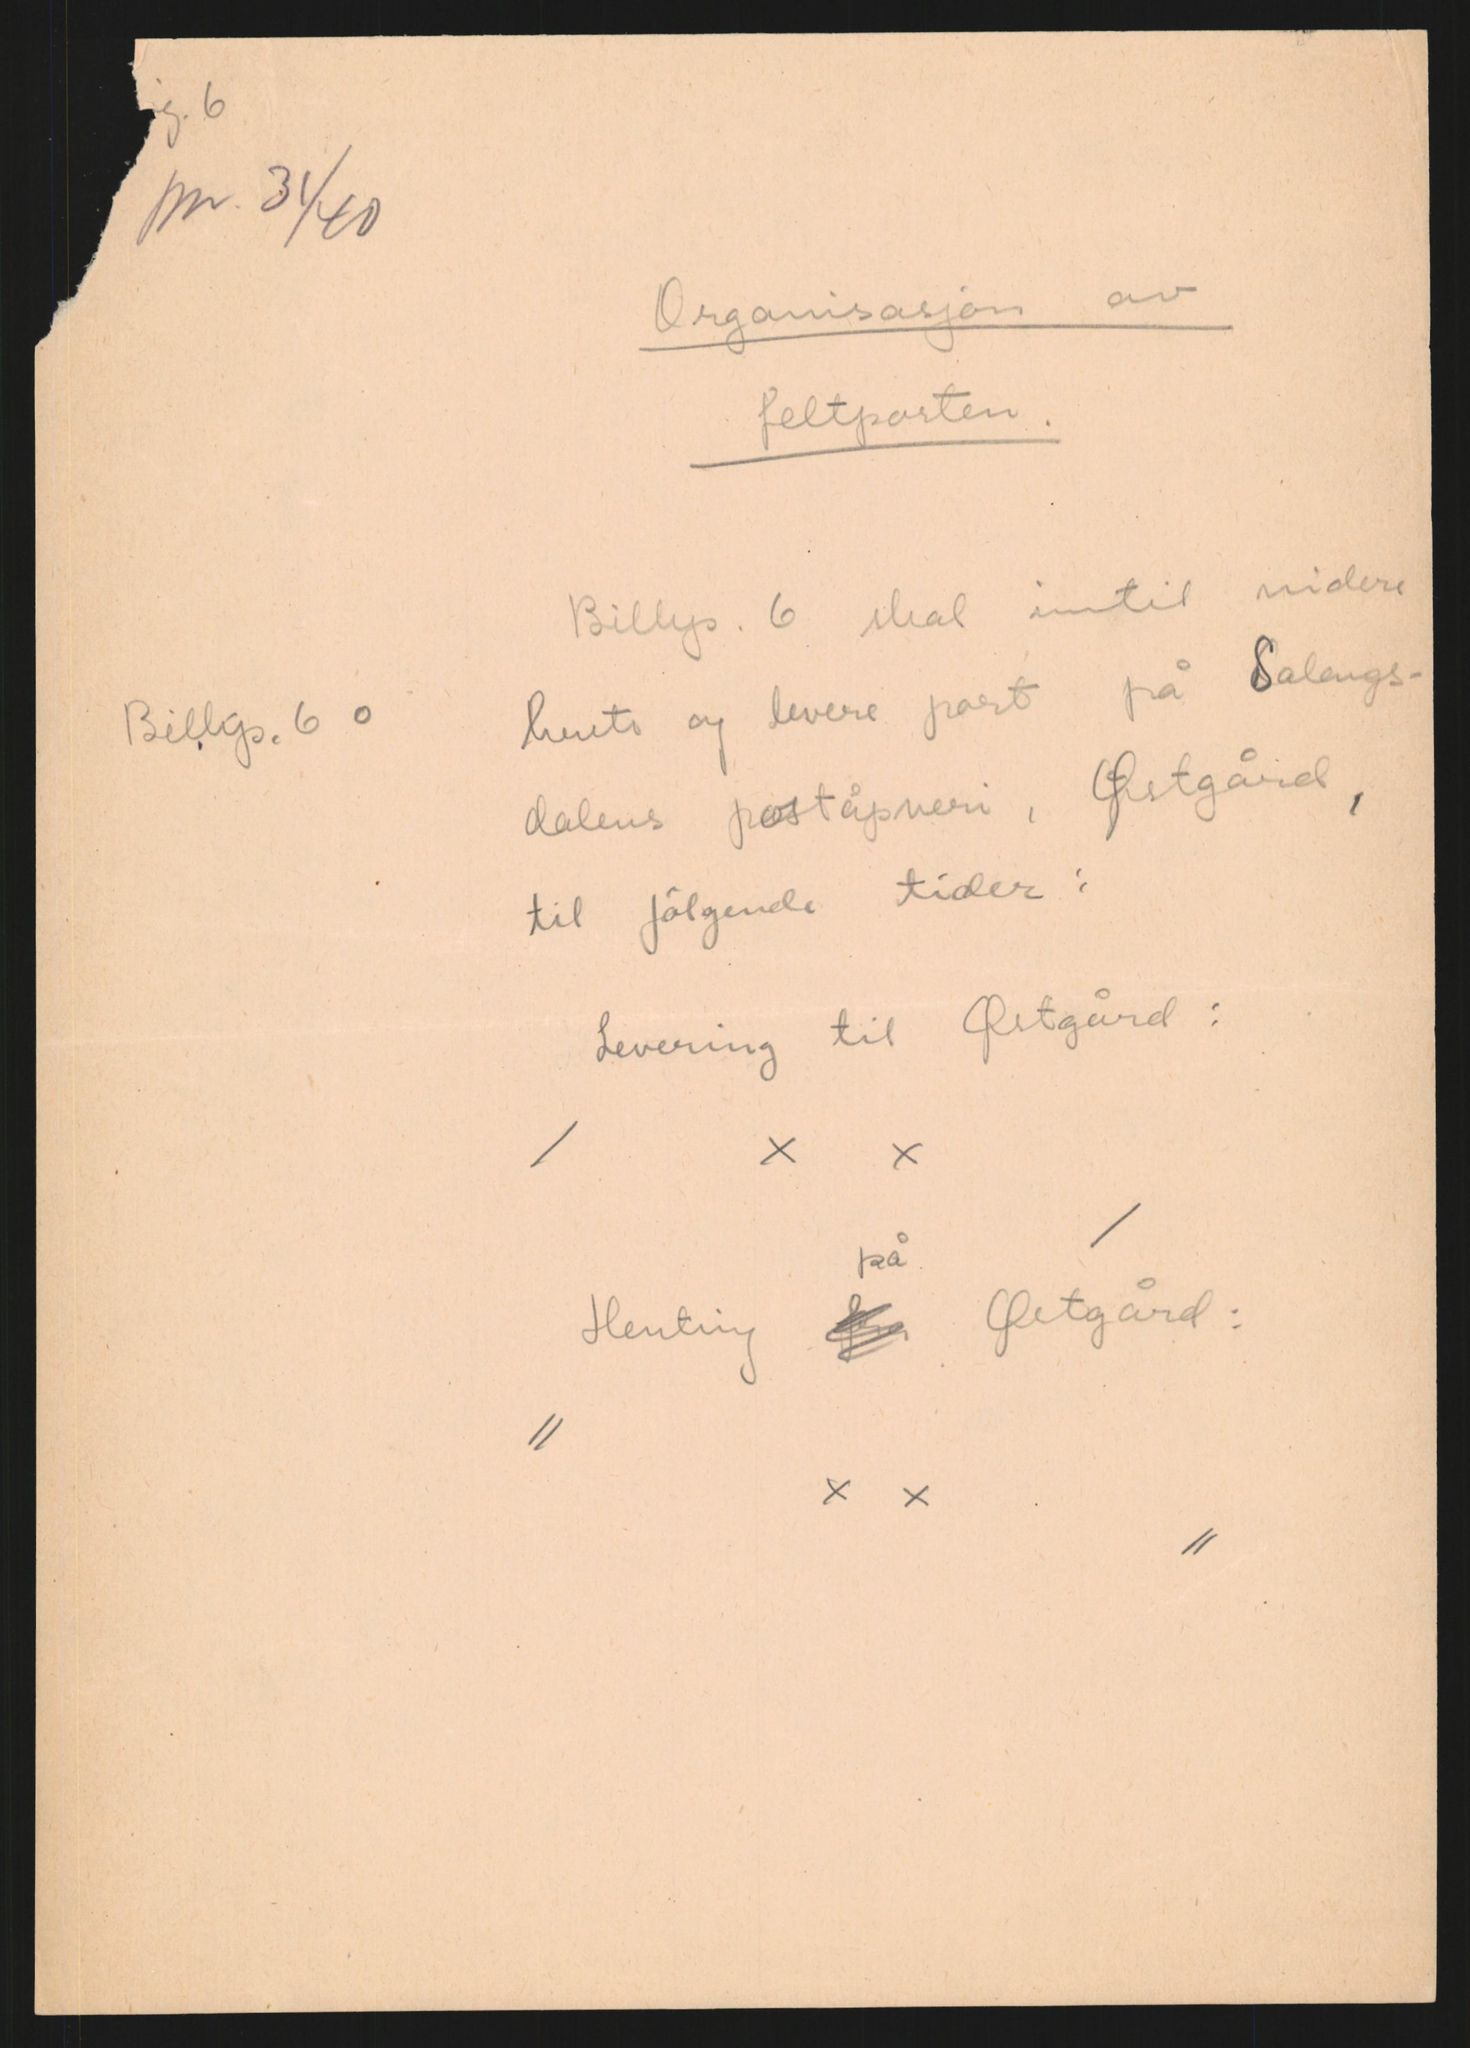 g. 6
jnr. 31/40
Organisasjon av
feltposten.
Billys. 6 skal inntil videre
Billys. 6 o
hente og levere post på Salangs-
dalens poståpneri, Østgård,
til følgende tider:
Levering til Østgård:
/ x x
/
på
Henting fra Østgård:
//
x x
//